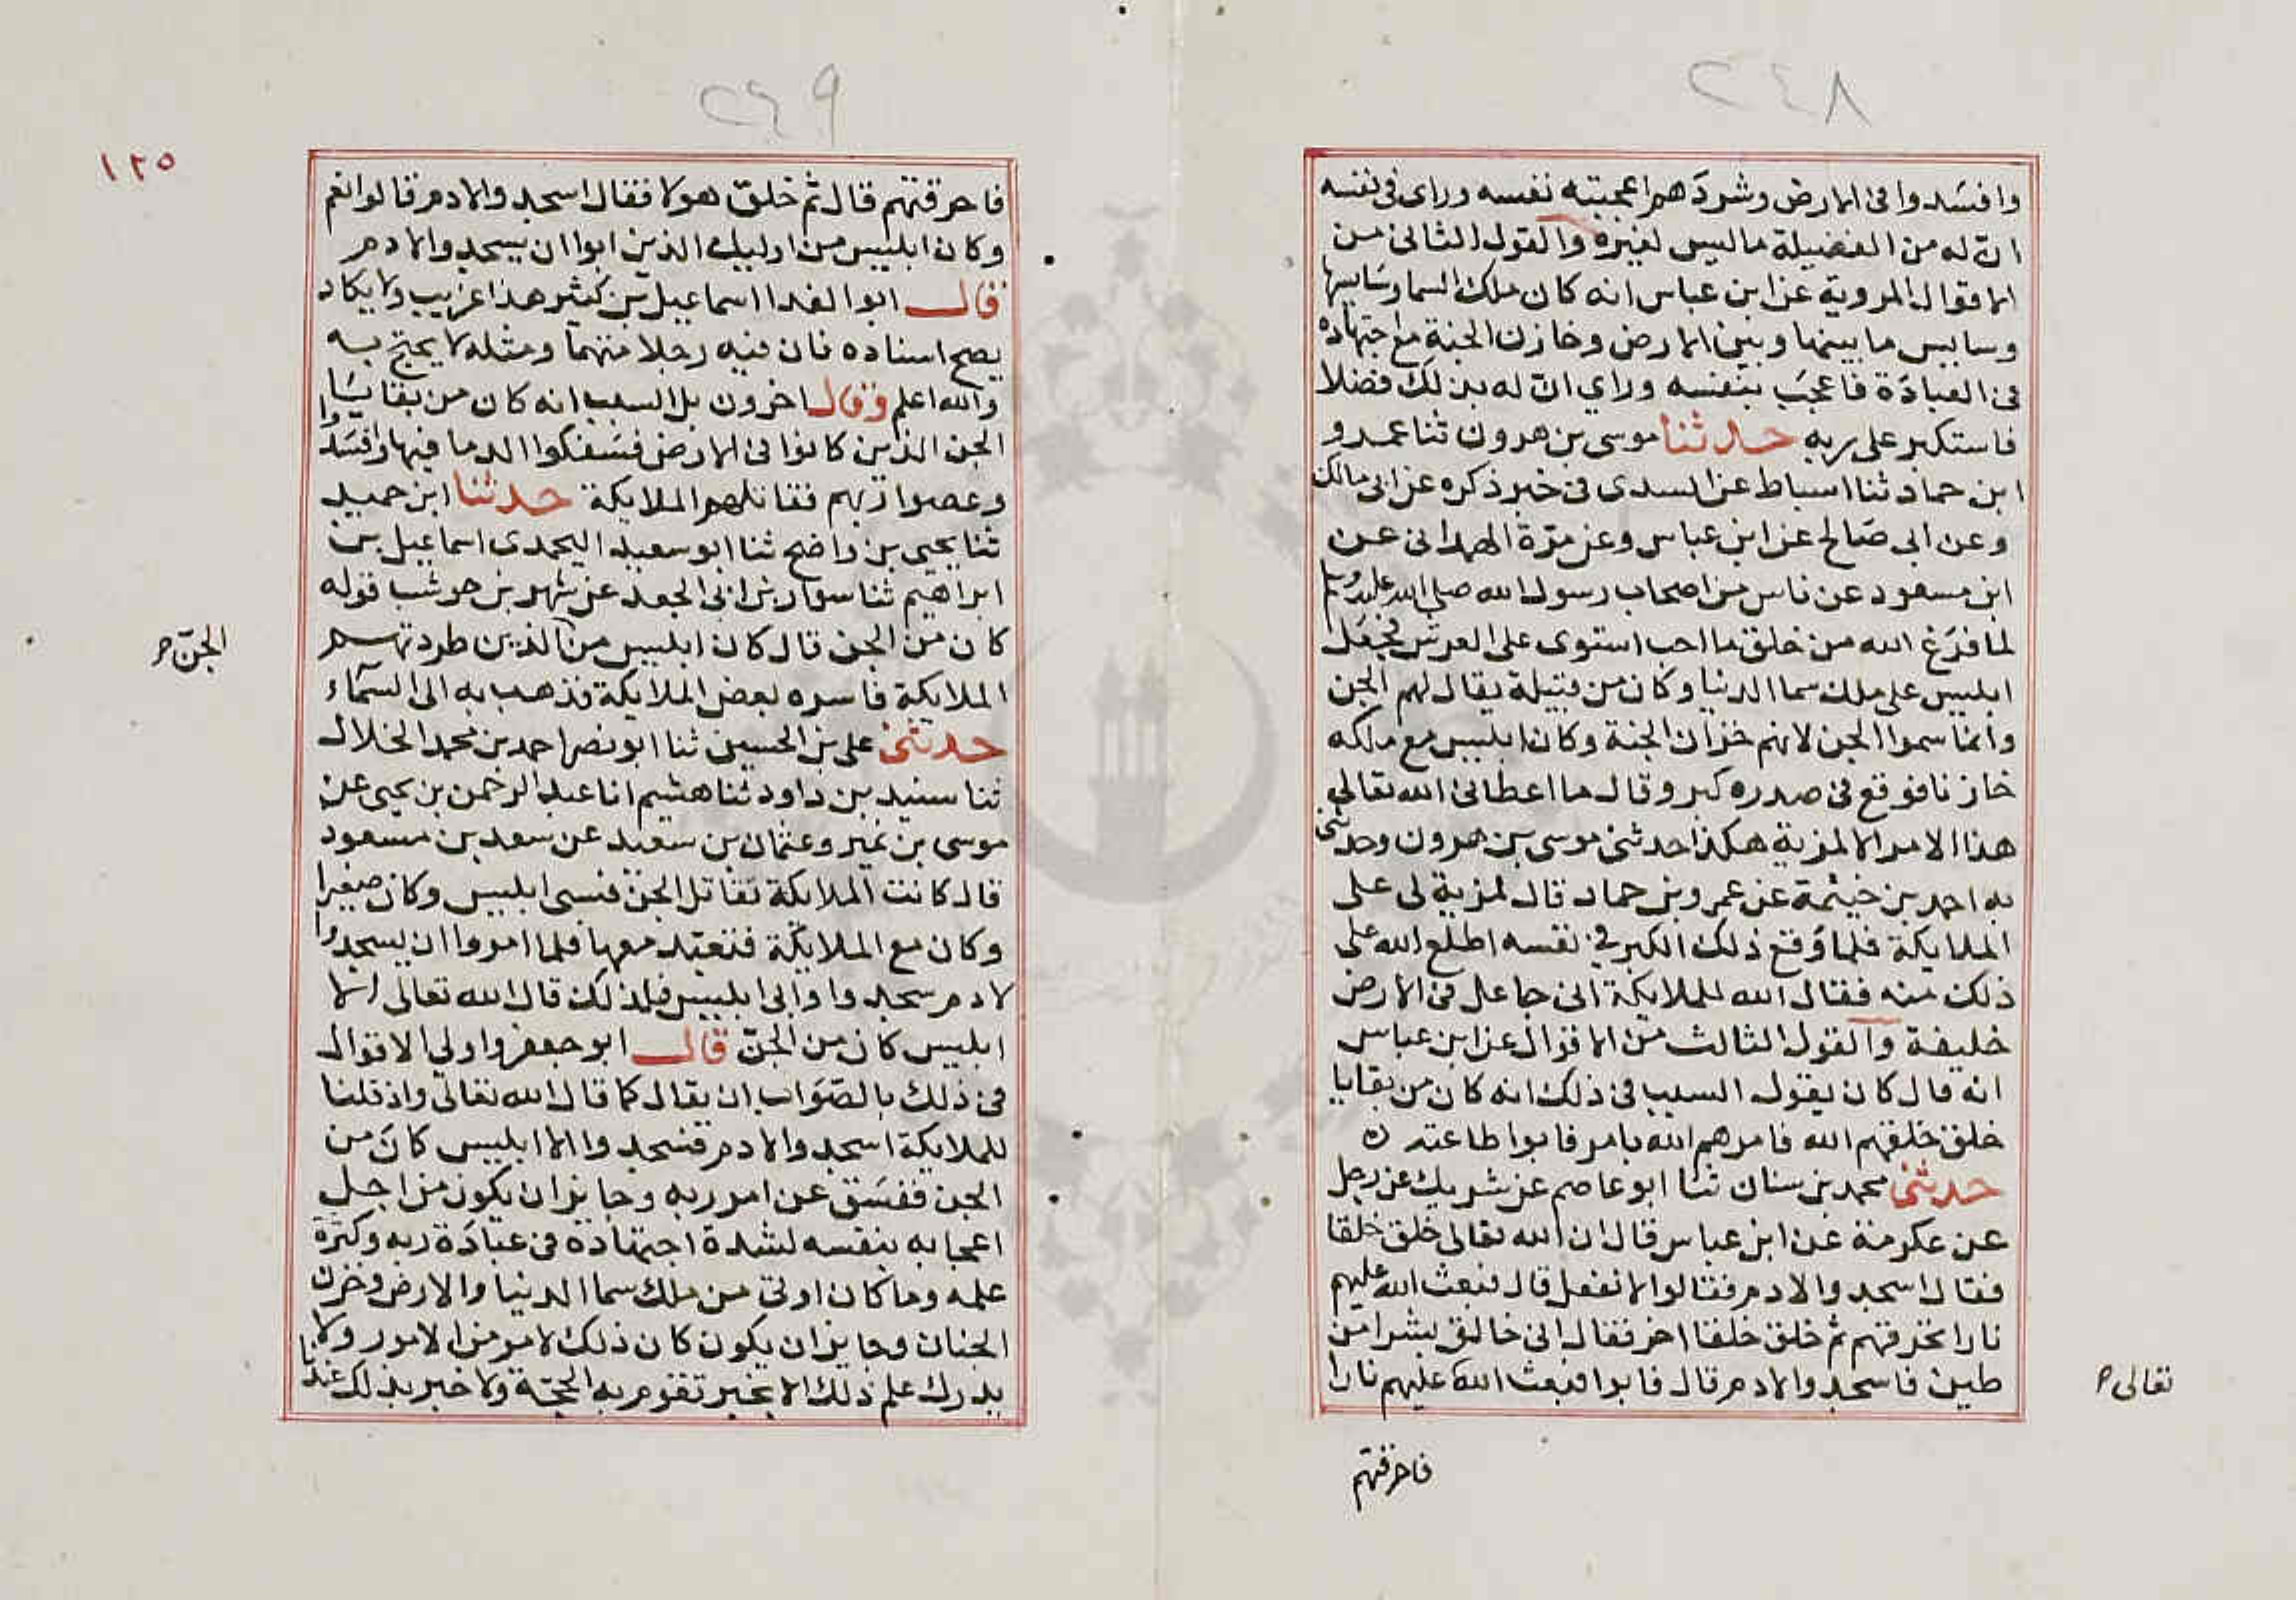 ٢٤٨
وافسدوا فى الارض وشردهم اعجبته نفسه وراى فى نفسه
ان له من الفضيلة ماليس لغيره والقول الثانى من
الاقوال المروية عن ابن عباس انه كان ملك السما وسايسها
وسايس ما بينها وبين الارض وخازن الجنة مع اجتهاده
فى العبادة فاعجب بنفسه وراي ان له بذلك فضلا
فاستكبر على ربه حدثنا موسى بن هرون ثنا عمرو
ابن حماد ثنا اسباط عن السدى فى خبر ذكره عن ابى مالك
وعن ابى صالح عن ابن عباس وعن مرة الهمدانى عن
ابن مسعود عن ناس من اصحاب رسول الله صلى الله عليه وسلم
لما فرغ الله من خلق ما احب استوى على العرش فجعل
ابليس على ملك سما الدنيا وكان من قبيلة يقال لهم الجن
وانما سموا الجن لانهم خزان الجنة وكان ابليس مع ملكه
خازنا فوقع فى صدره كبر وقال ما اعطانى الله تعالى
هذا الامر الا لمزية هكذا حدثنى موسى بن هرون وحدثنى
به احمد بن خيثمة عن عمرو بن حماد قال لمزية لى على
الملايكة فلما وقع ذلك الكبر في نفسه اطلع الله على
ذلك منه فقال الله للملايكة انى جاعل فى الارض
خليفة والقول الثالث من الاقوال عن ابن عباس
انه قال كان يقول السبب فى ذلك انه كان من بقايا
خلق خلقهم الله فامرهم الله بامر فابوا طاعته ن
حدثنى محمد بن سنان ثنا ابو عاصم عن شريك عن رجل
عن عكرمة عن ابن عباس قال ان الله تعالى خلق خلقا
فقال اسجدوا لادم فقالوا لا نفعل قال فبعث الله عليهم
نارا تحرقهم ثم خلق خلقا اخر فقال انى خالق بشرا من
طين فاسجدوا لادم قال فابوا فبعث الله عليهم نارا
تعالى م
فاحرقتهم
٢٤٩
١٢٥
فاحرقتهم قال ثم خلق هولا فقال اسجدوا لادم قالوا نعم
وكان ابليس من اوليك الذين ابوا ان يسجدوا لادم
قال ابو الفدا اسماعيل بن كثير هذا غريب ولا يكاد
يصح اسناده فان فيه رجلا متهما ومثله لا يحتج به
والله اعلم وقال اخرون بل السبب انه كان من بقايا
الجن الذين كانوا فى الارض فسفكوا الدما فيها وافسدوا
وعصوا ربهم فقاتلهم الملايكة حدثنا ابن حميد
ثنا يحيى بن واضح ثنا ابو سعيد اليحمدى اسماعيل بن
ابراهيم ثنا سوار بن ابى الجعد عن شهر بن حوشب قوله
كان من الجن قال كان ابليس من الذين طردتهم
الجن م
الملايكة فاسره بعض الملايكة فذهب به الى السماء
حدثنى على بن الحسين ثنا ابو نصر احمد بن محمد الخلال
ثنا سنيد بن داود ثنا هشيم انا عبد الرحمن بن يحيى عن
موسى بن نمير وعثمان بن سعيد عن سعد بن مسعود
قال كانت الملايكة تقاتل الجن فسبى ابليس وكان صغيرا
وكان مع الملايكة فتعبد معها فلما امروا ان يسجدوا
لادم سجدوا وابى ابليس فلذلك قال الله تعالى الا
ابليس كان من الجن قال ابو جعفر واولي الاقوال
فى ذلك بالصواب ان يقال كما قال الله تعالى واذ قلنا
للملايكة اسجدوا لادم فسجدوا الا ابليس كان من
الجن ففسق عن امر ربه وجايز ان يكون من اجل
اعجابه بنفسه لشدة اجتهاده فى عبادة ربه وكثرة
علمه وما كان اوتى من ملك سما الدنيا والارض وخزن
الجنان وجايز ان يكون كان ذلك لامر من الامور ولا
يدرك علم ذلك الا بخبر تقوم به الحجة ولا خبر بذلك عندنا